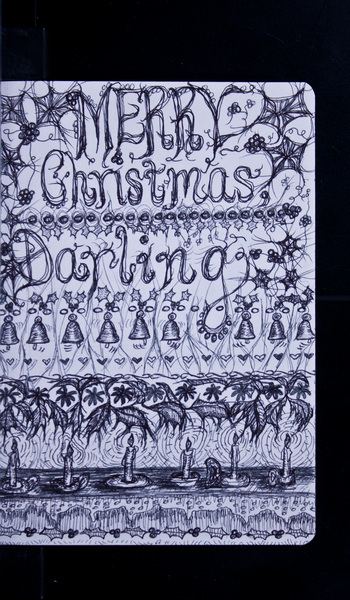 MERRY
Christmas,
Darling